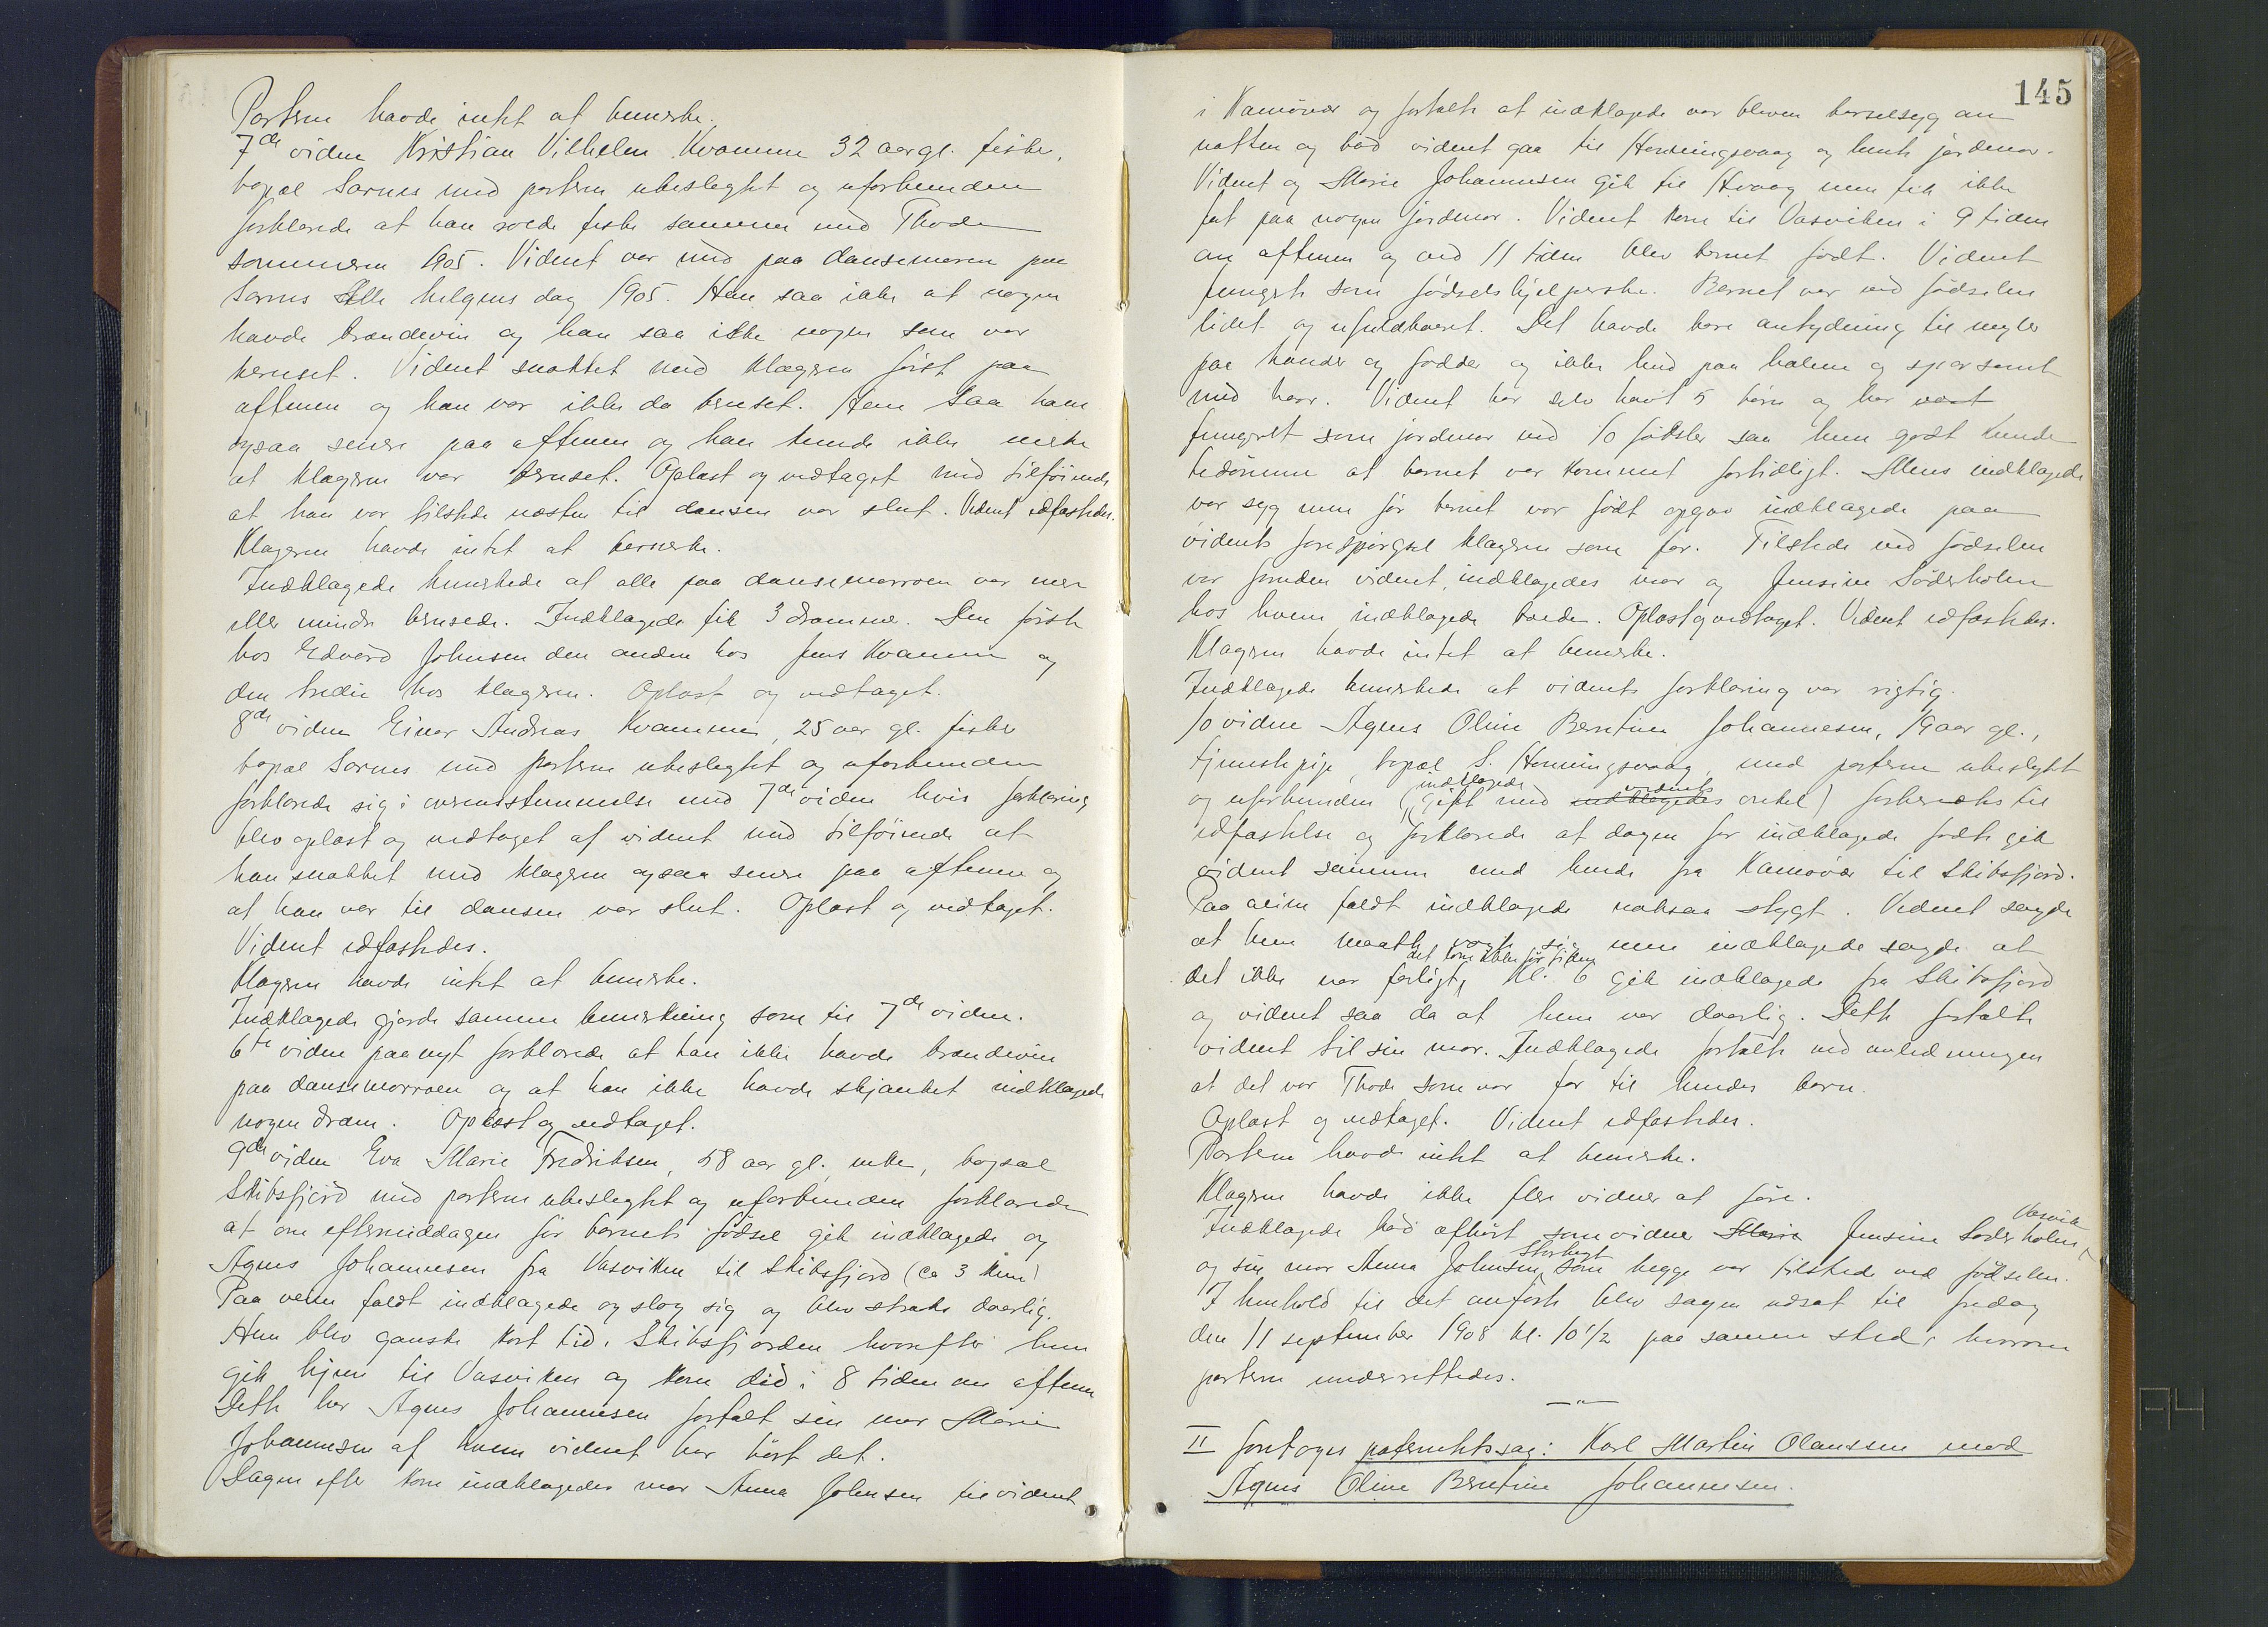 Parterne havde intet at bemerke.
7de vidne Kristian Vilhelm Kvamme 32 aar gl. fisker,
bopæl Sarnes med parterne ubeslegtet og uforbunden
forklarede at han rodde fiske sammen med Thode
sommeren 1905. Vidnet var med paa dansemoroen paa
Sarnes Alle helgens dag 1905. Han saa ikke at nogen
havde brændevin og han saa ikke nogen som var
beruset. Vidnet snakket med klageren først paa
aftenen og han var ikke da beruset. Han saa ham
ogsaa senere paa aftenen og han kunde ikke merke
at klageren var beruset. Oplæst og vedtaget med tilføiende
at han var tilstede næsten til dansen var slut. Vidnet edfæstedes.
Klageren havde intet at bemerke.
Indklagede bemerkede at alle paa dansemorroen var mer
eller mindre berusede. Indklagede fik 3 drammer. Den første
hos Edvard Johnsen den anden hos Jens Kvamme og
den tredie hos klageren. Oplæst og vedtaget.
8de vidne Einar Andreas Kvamme, 25 aar gl. fisker
bopæl Sarnes med parterne ubeslegtet og uforbunden
forklarede sig i overensstemmelse med 7de vidne hvis forklaring
blev oplæst og vedtaget af vidnet med tilføiende at
han snakket med klageren ogsaa senere paa aftenen og
at han var til dansen var slut. Oplæst og vedtaget.
Vidnet edfæstedes.
Klageren havde intet at bemerke.
Indklagede gjorde samme bemerkning som til 7de vidne.
6te vidne paanyt forklarede at han ikke havde brændevin
paa dansemorroen og at han ikke havde skjænket indklagede
nogen dram. Oplæst og vedtaget.
9de vidne Eva Marie Fredriksen, 58 aar gl. enke, bopæl
Skibsfjord med parterne ubeslegtet og uforbunden forklarede
at om eftermiddagen før barnets fødsel gik indklagede og
Agnes Johannesen fra Vasviken til Skibsfjord (ca 3 km)
Paa veien faldt indklagede og slog sig og blev straks daarlig.
Hun blev ganske kort tid i Skibsfjorden hvorefter hun
gik hjem til Vasviken og kom did i 8 tiden om aftenen
Dette har Agnes Johannesen fortalt sin mor Marie
Johannesen af hvem vidnet har hørt det.
Dagen efter kom indklagedes mor Anna Johnsen til vidnet
145
i Kamøvær og fortalte at indklagede var bleven barselsyg om
natten og bad vidnet gaa til Honningsvaag og hente jordmor.
Vidnet og Marie Johannesen gik til H.vaag men fik ikke
fat paa nogen jordmor. Vidnet kom til Vasviken i 9 tiden
om aftenen og ved 11 tiden blev barnet født. Vidnet
fungerte som fødselshjelperske. Barnet var ved fødselen
lidet og ufuldbaaret. Det havde bare antydning til negler
paa hænder og fødder og ikke hud paa halsen og sparsomt
med haar. Vidnet har selv havt 5 børn og har vært
fungeret som jordmor ved 10 fødsler saa hun godt kunde
bedømme at barnet var kommet fortidligt. Mens indklagede
var syg men før barnet var født opgav indklagede paa
vidnets forespørgsel klageren som far. Tilstede ved fødselen
var foruden vidnet, indklagedes mor og Jensine Söderholm
hos hvem indklagede boede. Oplæst og vedtaget. Vidnet edfæstedes.
Klageren havde intet at bemerke.
Indklagede bemerkede at vidnets forklaring var rigtig.
10 vidne Agnes Oline Berntine Johannesen, 19 aar gl.,
tjenestepige, bopæl S. Honningsvaag, med parterne ubeslegtet
indklagede vidnets
og uforbunden (gift med indklagedes onkel) forberedtes til
edfæstelse og forklarede at dagen før indklagede fødte gik
vidnet sammen med hende fra Kamøvær til Skibsfjord.
Paa veien faldt indklagede noksaa stygt. Vidnet sagde
at hun maatte vogte sig men indklagede sagde at
det kom ikke før tiden
det ikke var farligt, Kl. 6 gik indklagede fra Skibsfjord
og vidnet saa da at hun var daarlig. Dette fortalte
vidnet til sin mor. Indklagede fortalte ved anledningen
at det var Thode som var far til hendes barn.
Oplæst og vedtaget. Vidnet edfæstedes.
Parterne havde intet at bemerke.
Klageren havde ikke flere vidner at føre.
Vasvik
Indklagede bad afhørt som vidner Marie Jensine Söderholm,
Storbugt
og sin mor Anna Johnsen, som begge var tilstede ved fødselen.
I henhold til det anførte blev sagen udsat til fredag
den 11 september 1908 kl. 10 1/2 paa samme sted, hvorom
parterne underrettedes.
II foretoges paternitetssag: Karl Martin Olaussen mod
Agnes Oline Berntine Johannesen.